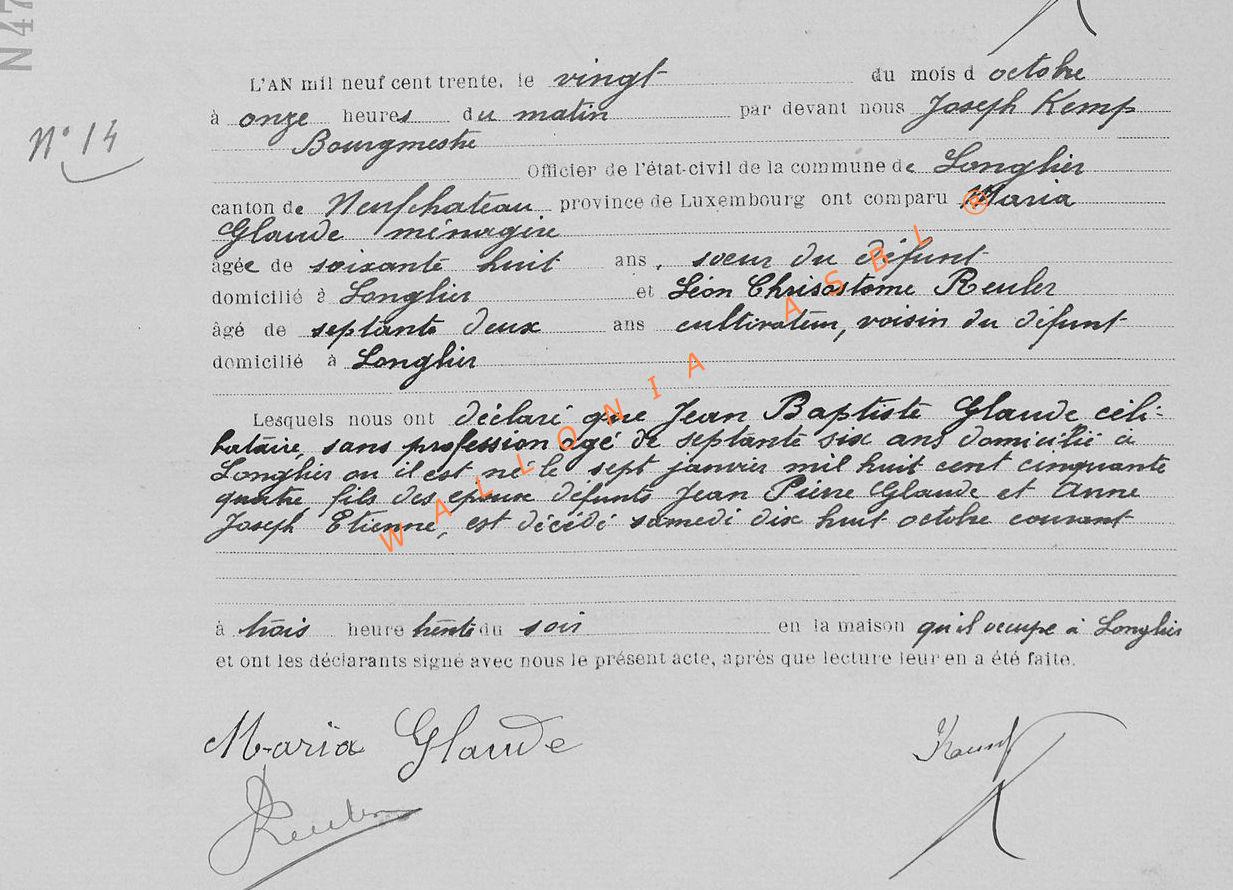 N 47
L'AN mil neuf cent trente, le vingt du mois d octobre
à onze heures du matin par devant nous Joseph Kemp
N° 14
Bourgmestre
Officier de l'état-civil de la commune de Longlier
canton de Neufchateau province de Luxembourg ont comparu Maria
Glaude ménagère
âgée de soixante huit ans, soeur du défunt
domicilié à Longlier et Léon Chrisostome Reuler
âgé de septante deux ans cultivateur, voisin du défunt
domicilié à Longlier
Lesquels nous ont déclaré que Jean Baptiste Glaude céli-
bataire, sans profession agé de septante six ans domicilié à
Longlier ou il est né le sept janvier mil huit cent cinquante
quatre fils des epoux défunts Jean Pierre Glaude et Anne
Joseph Etienne, est décédé samedi dix huit octobre courant
à trois heure trente du soir en la maison qu'il occupe à Longlier
et ont les déclarants signé avec nous le présent acte, après que lecture leur en a été faite.
Maria Glaude
Kemp
Reuler
WALLONIA ASBL ®